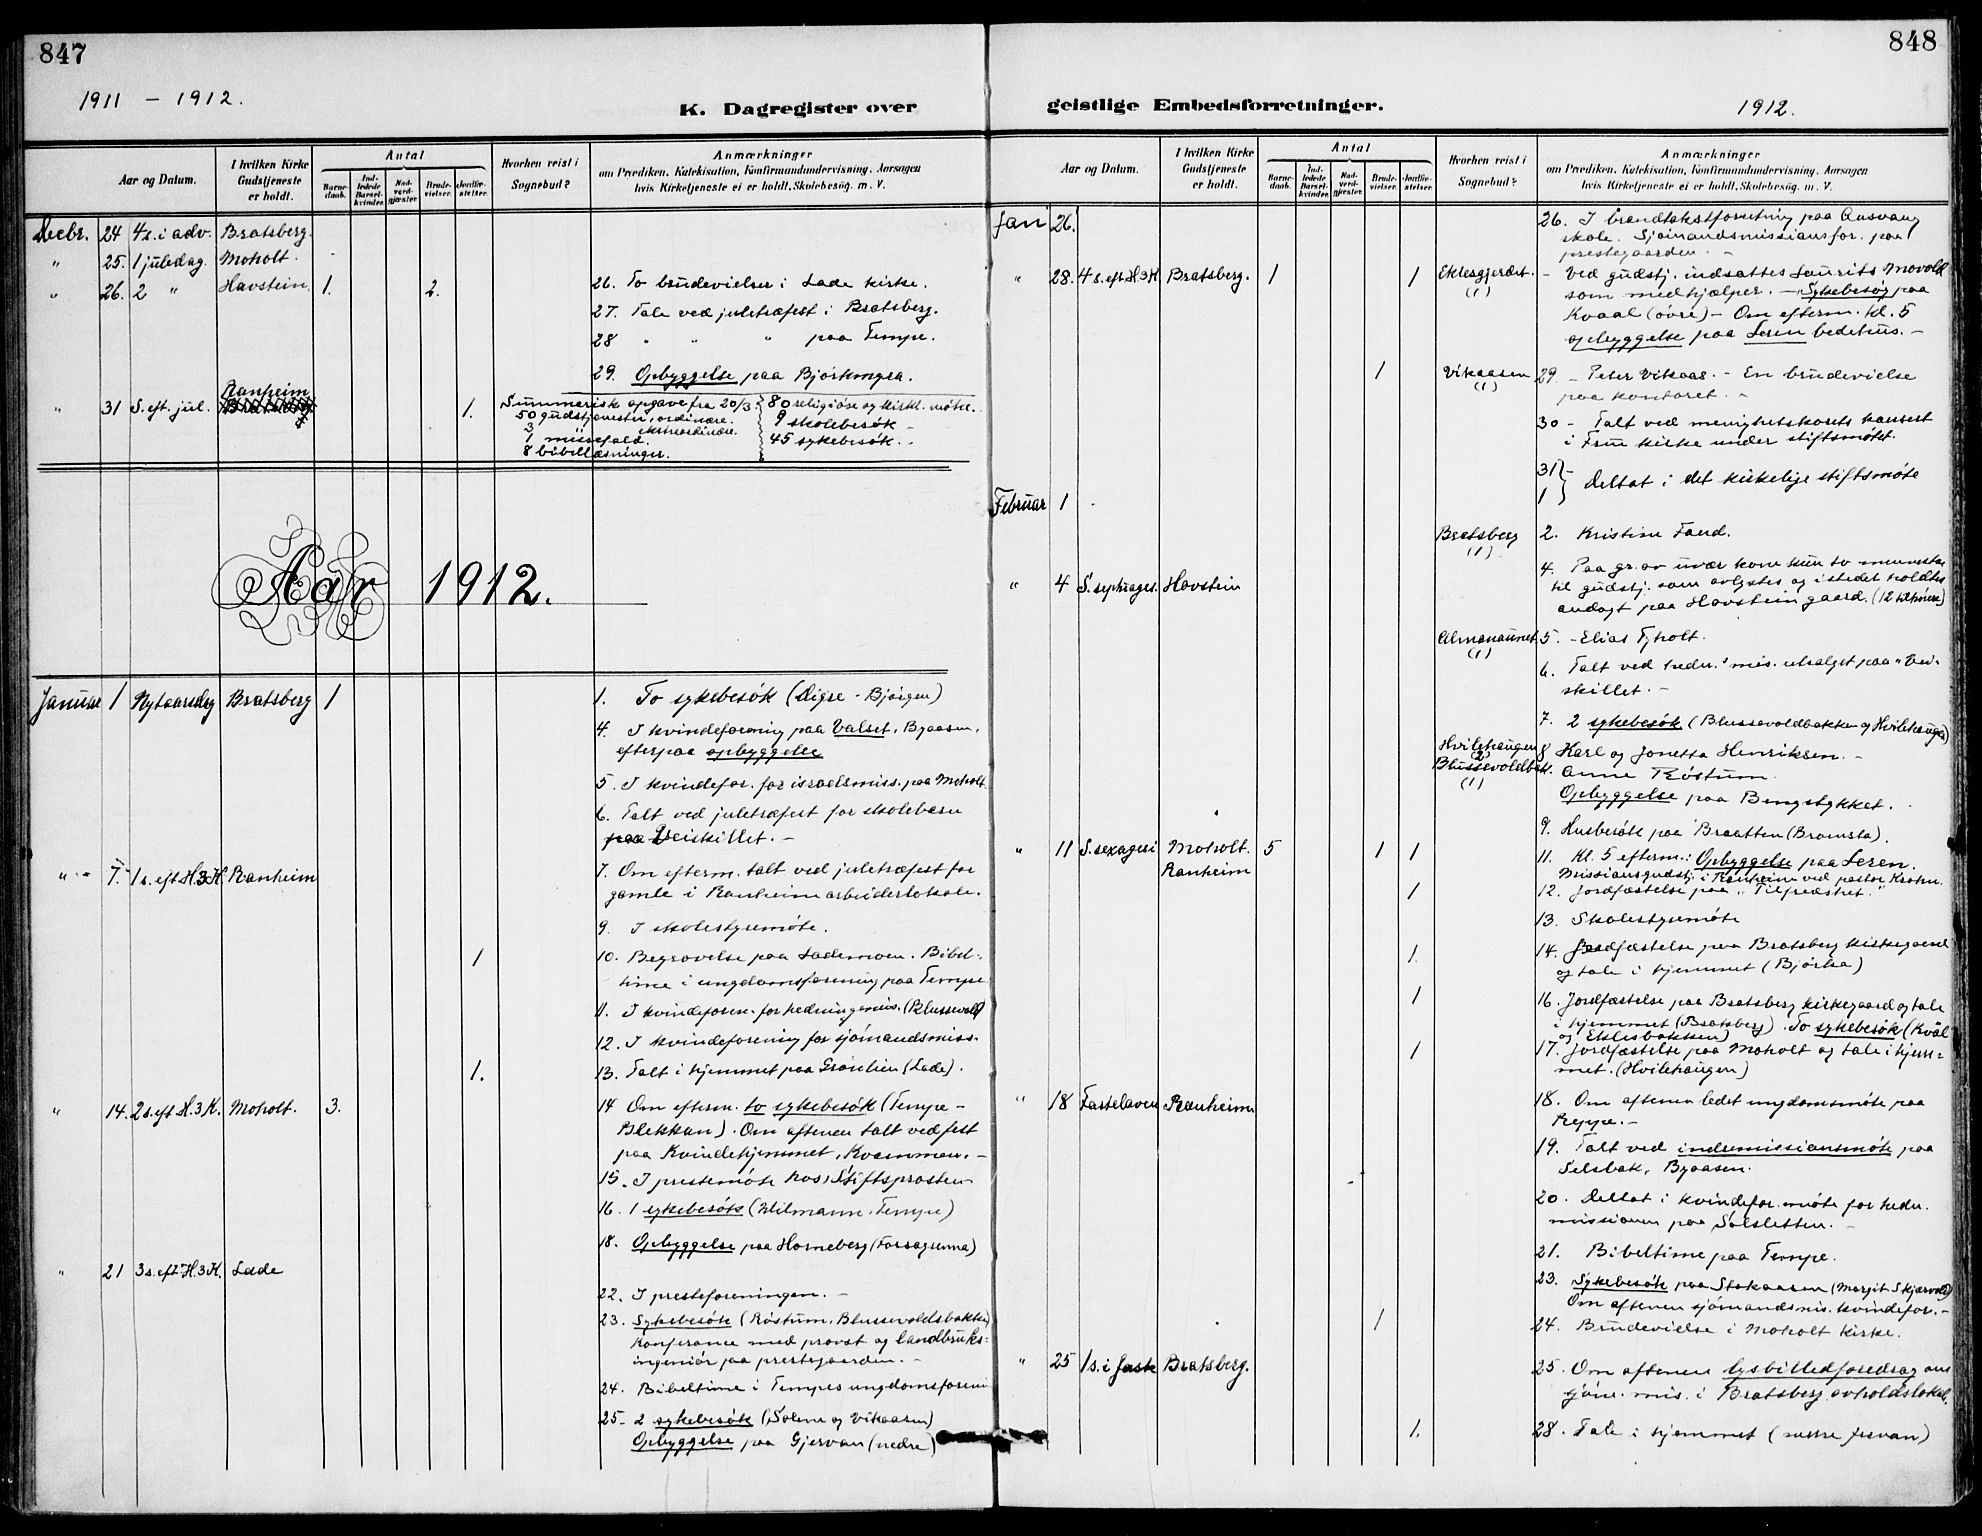 847
1911 - 1912.
K. Dagregister over
Aar og Datum.
I hvilken Kirke Gudstjeneste er holdt.
Antal
Barnedaab.
Indledede Barselkvinder.
Nadverdgjæster.
Brudevielser.
Jordfæstelser.
Hvorhen reist i Sognebud?
Anmærkninger
om Prædiken, Katekisation, Konfirmandundervisning, Aarsagen
hvis Kirketjeneste ei er holdt, Skolebesøg. m. V.
Decbr. 24 4s. i adv. Bratsberg.
" 25. 1 juledag. Moholt.
" 26. 2 " Havstein. 1. 2. 26. To brudevielser i Lade kirke.
27. Tale ved juletræfest i Bratsberg.
28 " " " paa Tempe.
29. Opbyggelse paa Bjørkmyra.
Ranheim
" 31 S. eft. jul. Bratsberg 1.
Summarisk opgave fra 20/3 80 religiøse og kirkl. møter.
50 gudstjenester, ordinære. 9 skolebesøk -
3 ekstraordinære. 45 sykebesøk. -
1 missefald.
8 bibellæsninger.
Aar 1912.
Januar 1 Nytaarsdag Bratsberg 1 1. To sykebesøk (Digre - Bjørgen)
4. I kvindeforening paa Valset, Byaasen,
efterpaa opbyggelse
5. I kvindefor. for israelsmiss. paa Moholt.
6. Talt ved juletræfest for skolebarn
paa Veiskillet. -
" - 7. 1 s. eft H.3.K. Ranheim 7. Om efterm. talt ved juletræfest for
gamle i Ranheim arbeiderlokale.
9. I skolestyremøte.
1 10. Begravelse paa Lademoen. Bibel-
time i ungdomsforening paa Tempe
11. I kvindeforen. for hedningemis. (Blussevold)
12. I kvindeforening for sjømandsmiss.
1. 13. Talt i hjemmet paa Grønlien (Lade).
" 14. 2 s. eft H.3.K. Moholt. 3. 14 Om efterm. to sykebesøk (Tempe -
Blekkan). Om aftenen talt ved fest
paa Kvindehjemmet, Kvammen. -
15. I prestemøte hos Stiftsprosten
16. 1 sykebesøk (Wilmann, Tempe)
18. Opbyggelse paa Horneberg (Forsøgrenna)
" 21 3 s. eft H.3.K. Lade
22. I presteforeningen. -
23. Sykebesøk (Røstum, Blussevoldsbakken)
Konferance med provst og landbruks-
ingeniør paa prestegaarden. -
24. Bibeltime i Tempes ungdomsforeni
25 - 2 sykebesøk (Solem og Vikaasen)
Opbyggelse paa Gjervan (nedre)
848
geistlige Embedsforretninger.
1912.
Aar og Datum.
I hvilken Kirke Gudstjeneste er holdt.
Antal
Barnedaab.
Indledede Barselkvinder.
Nadverdgjæster.
Brudevielser.
Jordfæstelser.
Hvorhen reist i Sognebud?
Anmærkninger
om Prædiken, Katekisation, Konfirmandundervisning, Aarsagen
hvis Kirketjeneste ei er holdt, Skolebesøg. m. V.
Jan 26. 26. I brandtakstforretning paa
skole. Sjømandsmissionsfor. paa
prestegaarden. -
" 28. 4 s. eft H3K Bratsberg. 1 1 Eklesgjerdet. (1) - Ved gudstj. indsattes Laurits Movold
som medhjælper. - Sykebesøg paa
Kvaal (øvre) - Om efterm. kl. 5
opbyggelse paa Leren bedehus. -
1 Vikaasen (1) 29. - Peter Vikaas. - En brudevielse
paa kontoret. -
30 - Talt ved menighetskorets konsert
i Frue kirke under stiftsmøtet.
31 -
Februar 1 1 Deltat i det kirkelige stiftsmøte
Bratsberg (1) 2. Kristine Fand.
" 4 S. septuages. Havstein 4. Paa gr. av uvær kom kun to mennesker
til gudstj. som avlystes og istedet holdtes
andagt paa Havstein gaard. (12 tilhørere)
Almanaunet (1) 5. - Elias Tyholt.
6. Talt ved hedn.mis. utsalget paa "Vei-
skillet. -
7. 2 sykebesøk (Blussevoldbakken og Hvilehaugen)
Hvilehaugen (2) 8 Karl og Jonetta Henriksen. -
Blussevoldbak. (1) Anne Røstum.
Opbyggelse paa Bengstykket. -
9. Husbesøk paa Braatten (Bromsta).
" 11 S. sexagesi Moholt. 5 1 1 11. Kl. 5 efterm.: Opbyggelse paa Leren.
Ranheim Missionsgudstj. i Ranheim ved pastor Krohn.
1 12. Jordfæstelse paa "Tilfredshet."
13. Skolestyremøte
1. 14. Jordfæstelse paa Bratsberg kirkegaard
og tale i hjemmet (Bjørka)
1 16. Jordfæstelse paa Bratsberg kirkegaard og tale
i hjemmet (Bratsberg). To sykebesøk (Kvål
og Eklisbakken)
1 17. Jordfæstelse paa Moholt og tale i hjem-
met. (Hvilehaugen)
" 18 Fastelaven Ranheim 18. Om aftenen ledet ungdomsmøte paa
Reppe. -
19. Talt ved indremissionsmøte paa
Selsbak, Byaasen.
20. Deltat i kvindefor. møte for hedn.
missionen paa Solsletten. -
21. Bibeltime paa Tempe.
23. Sykebesøk paa Stokaasen (Margit Skjærvold)
Om aftenen sjømandsmis. kvindefor. -
1 24. Brudevielse i Moholt kirke.
" 25 1 s. i faste Bratsberg. 25. Om aftenen lysbilledforedrag om
sjøm. mis. i Bratsberg avholdslokale.
1. 28. Tale i hjemmet